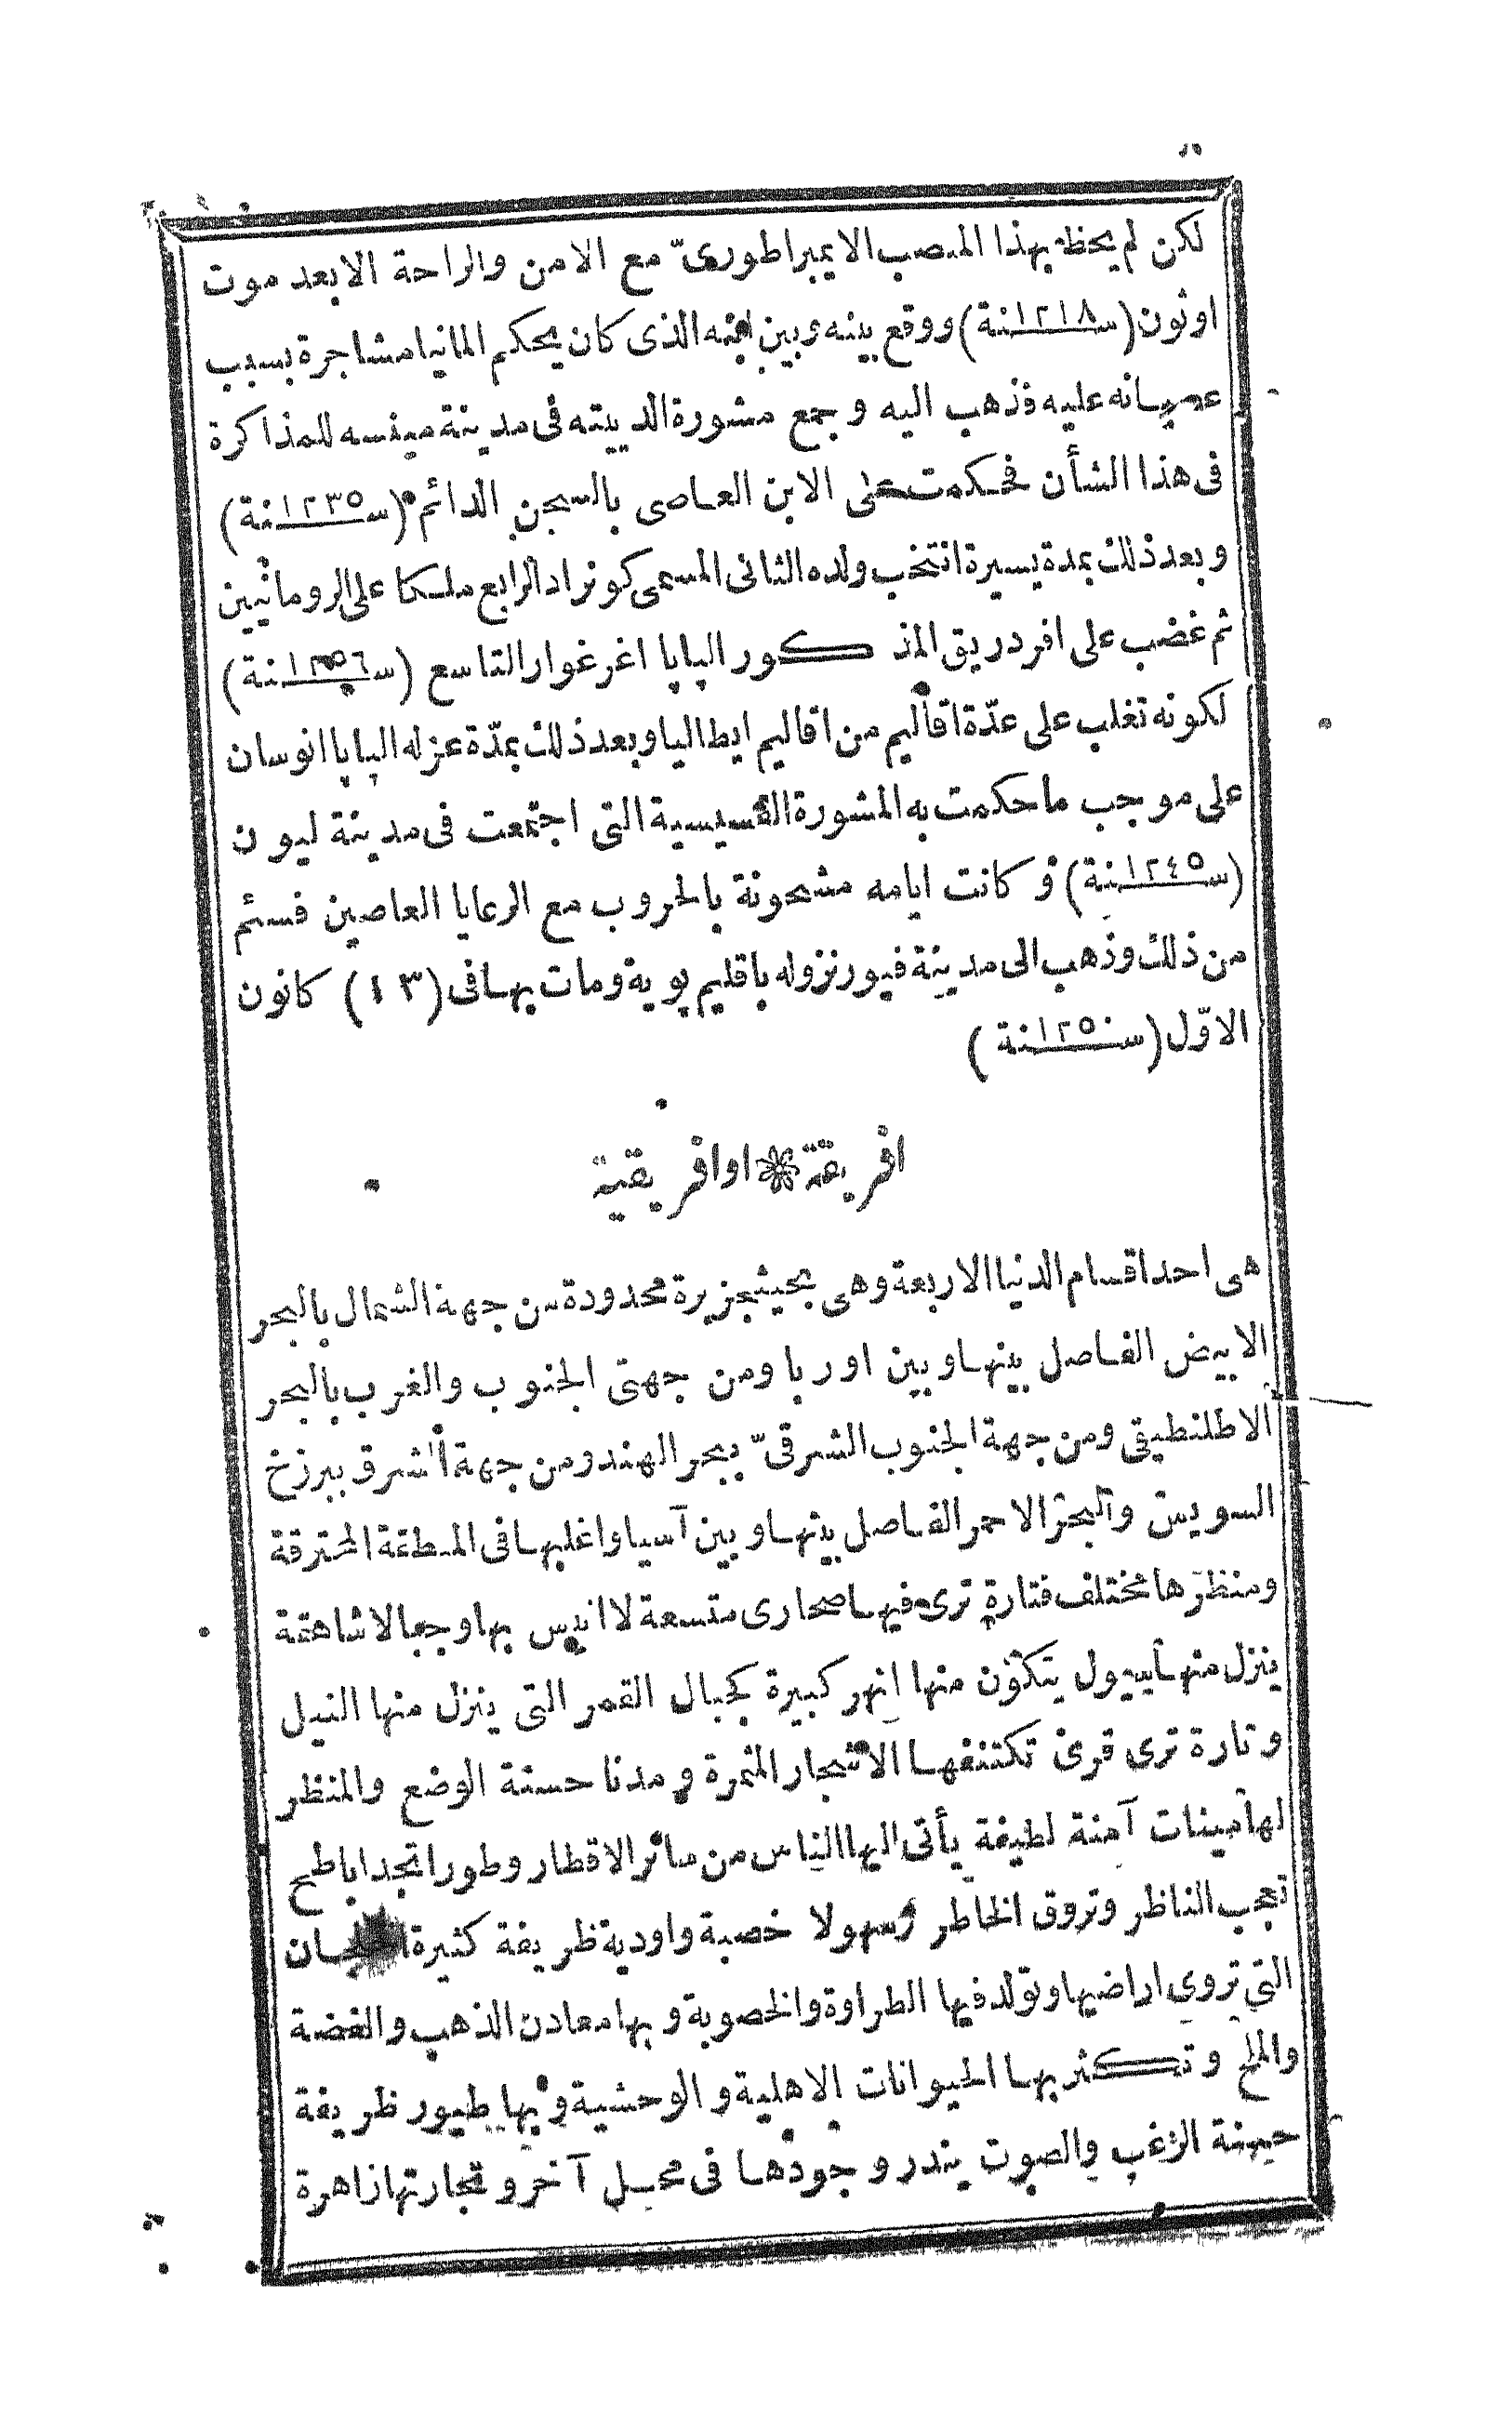 لكن لم يحظ بهذا المنصب الايمبراطورىّ مع الامن والراحة الابعد موت
اوثون (سنة ١٢١٨) ووقع بينه وبين ابنه الذى كان يحكم المانيا مشاجرة بسبب
عصيانه عليه فذهب اليه وجمع مشورة الدييته فى مدينة مينسه للمذاكرة
فى هذا الشأن فحكمت على الابن العاصى بالسجن الدائم (سنة ١٢٣٥)
وبعد ذلك بمدة يسيرة انتخب ولده الثانى المسمى كونراد الرابع ملكا على الرومانيين
ثم غضب على افردريق المذكور الپاپا اغرغوار التاسع (سنة)
لكونه تغلب على عدّة اقاليم من اقاليم ايطاليا وبعد ذلك بمدّة عزله الپاپا انوسان
على موجب ما حكمت به المشورة القسيسية التى اجتمعت فى مدينة ليون
(سنة ١٢٤٥) وكانت ايامه مشحونة بالحروب مع الرعايا العاصين فسئم
من ذلك وذهب الى مدينة فيورنزوله باقليم پوية ومات بها فى (١٣) كانون
الاوّل (سنة ١٢٥٠)
افريقة ❀ او افريقية
هى احد اقسام الدنيا الاربعة وهى بحيثجزيرة محدودة من جهة الشمال بالبحر
الابيض الفاصل بينها وبين اوربا ومن جهتى الجنوب والغرب بالبحر
الاطلنطيقى ومن جهة الجنوب الشرقىّ ببحر الهند ومن جهة الشرق ببرزخ
السويس والبحر الاحمر الفاصل بينها وبين آسيا واغلبها فى المنطقة المحترقة
ومنظرها مختلف فتارة ترى فيها صحارى متسعة لا انيس بها وجبالا شاهقة
ينزل منها سيول يتكوّن منها انهر كبيرة كجبال القمر التى ينزل منها النيل
وتارة ترى قرى تكتنفها الاشجار المثمرة ومدنا حسنة الوضع والمنظر
لها مينات آمنة لطيفة يأتى اليها الناس من سائر الاقطار وطورا تجد اباطح
تعجب الناظر وتروق الخاطر وسهولا خصبة واودية ظريفة كثيرة الخلجان
التى تروى اراضيها وتولد فيها الطراوة والخصوبة وبها معادن الذهب والفضة
والملح وتكثر بها الحيوانات الاهلية والوحشية وبها طيور ظريفة
حسنة الزغب والصوت يندر وجودها فى محل آخر وتجارتها زاهرة